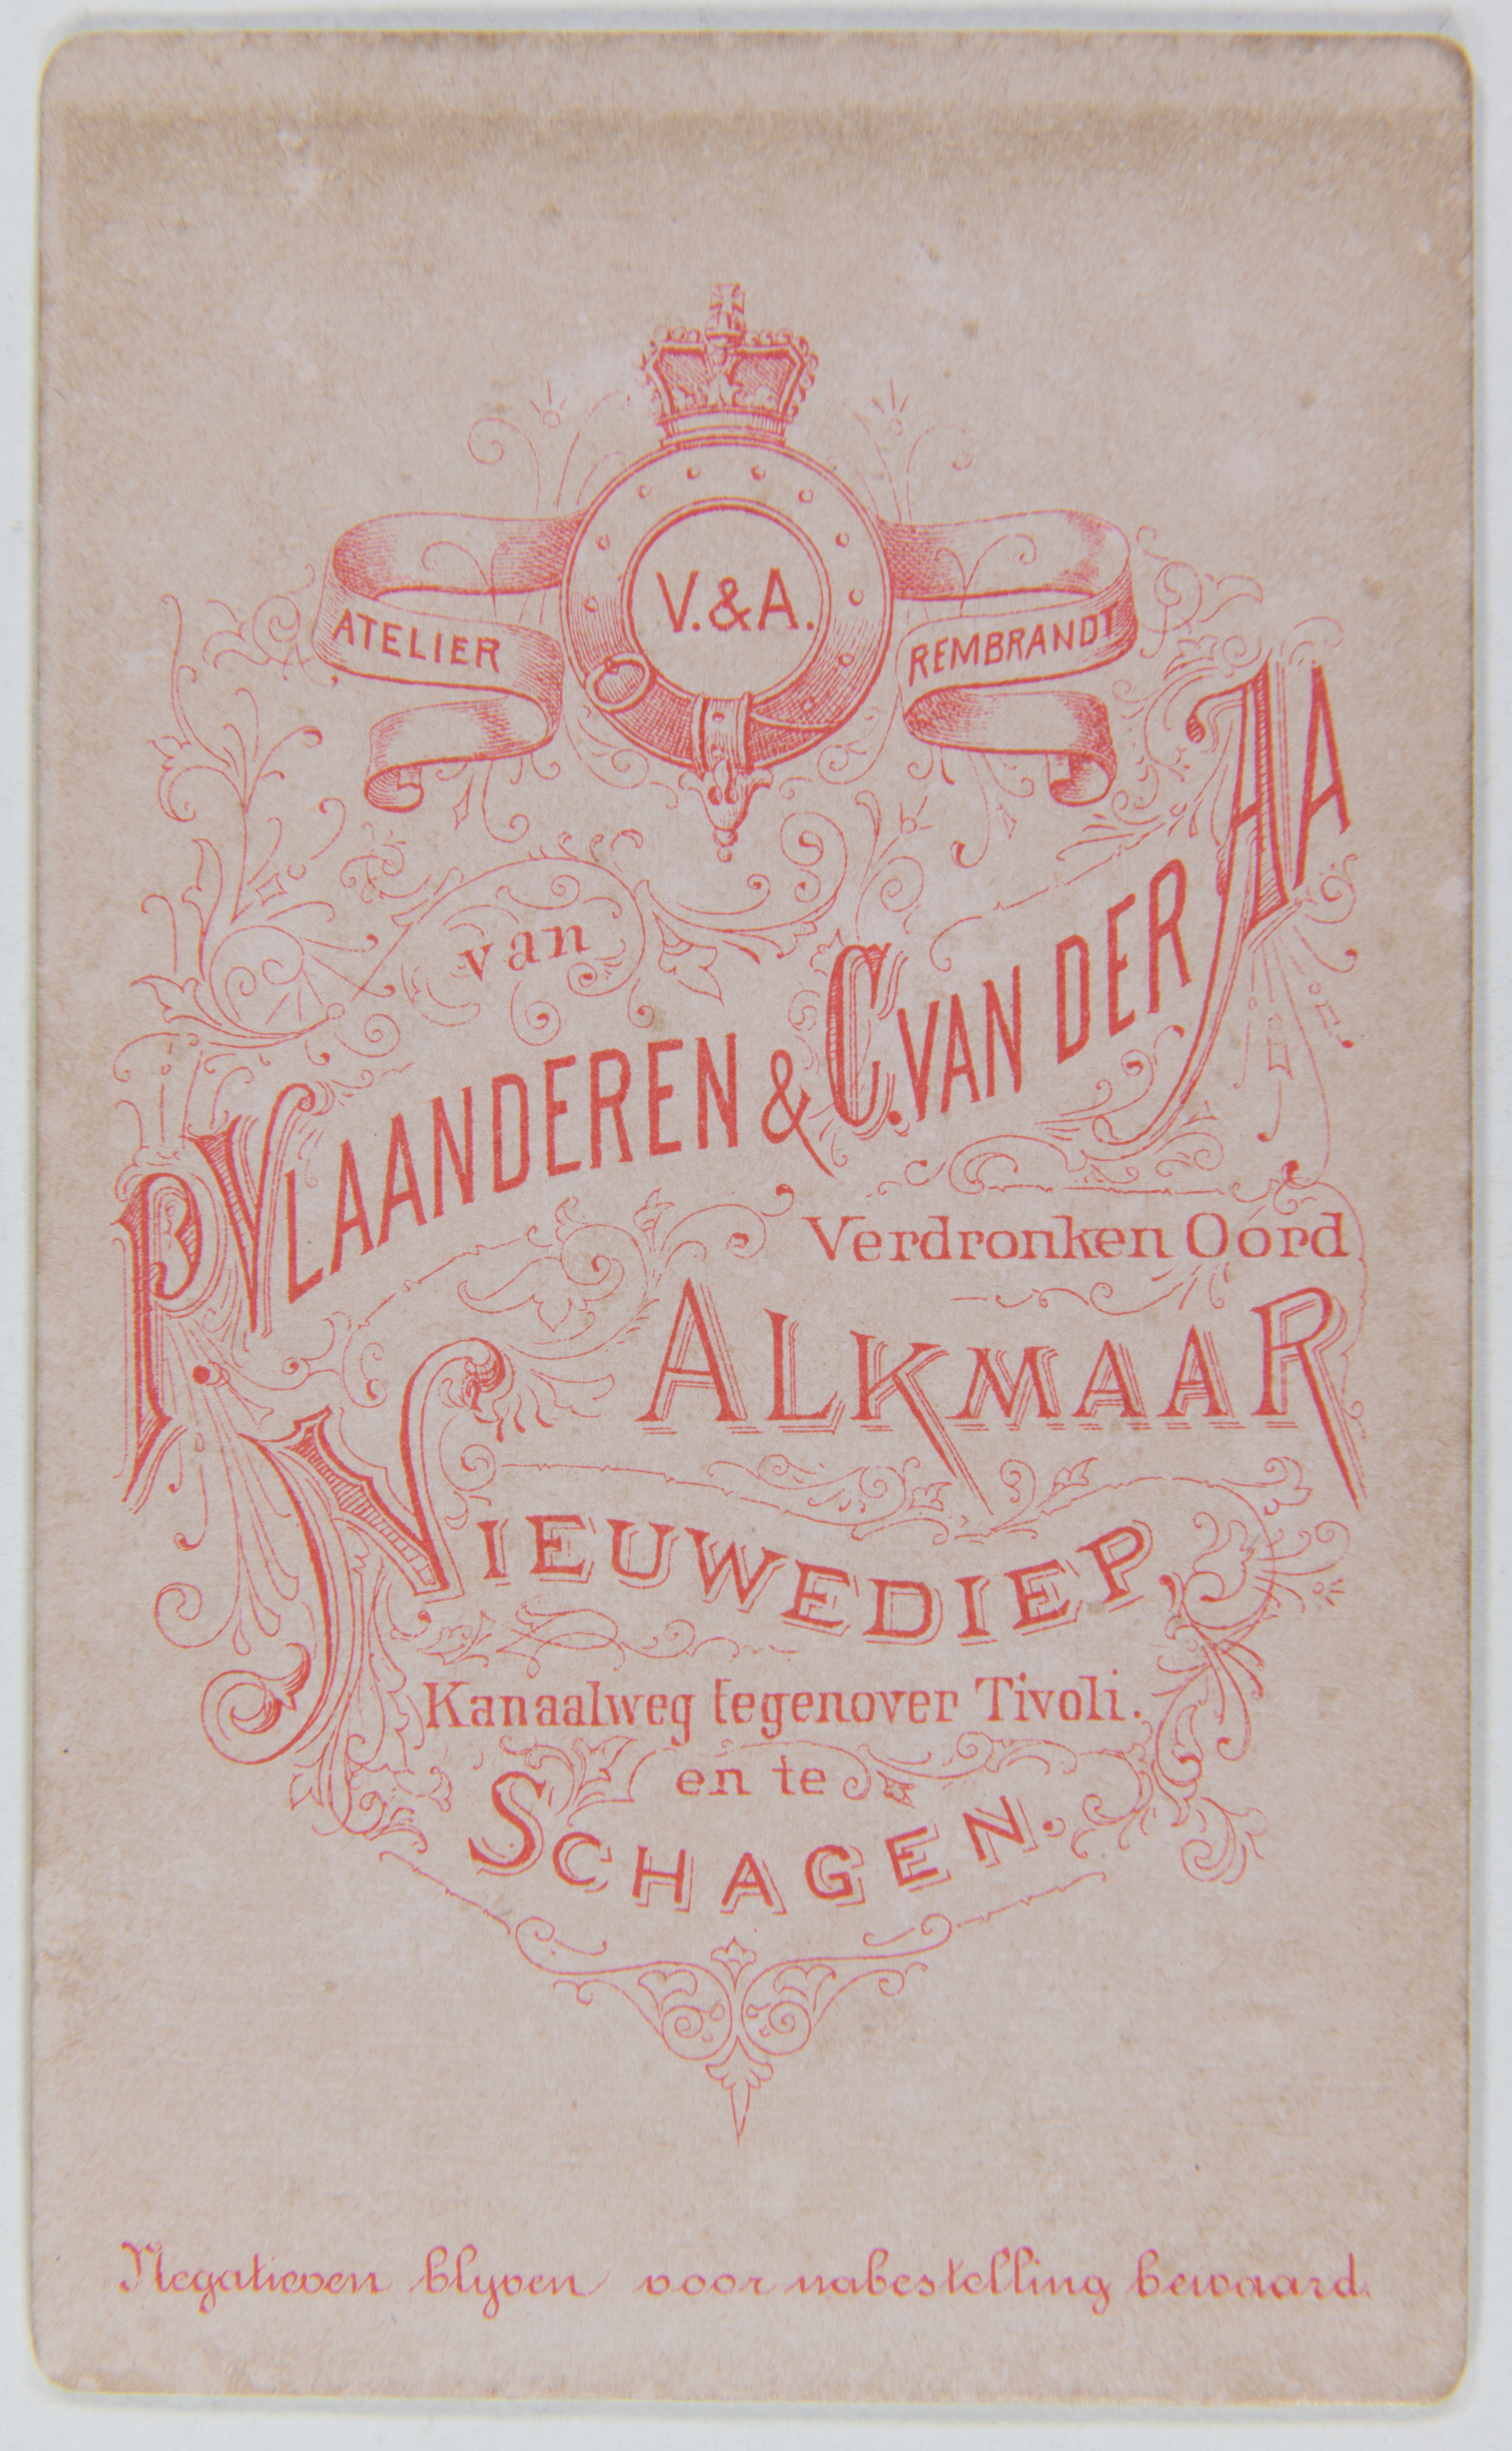 V. & A.
ATELIER REMBRANDT
van
P. VLAANDEREN & C. VAN DER AA
Verdronken Oord
ALKMAAR
NIEUWEDIEP,
Kanaalweg tegenover Tivoli.
en te
SCHAGEN.
Negatieven blyven voor nabestelling bewaard.